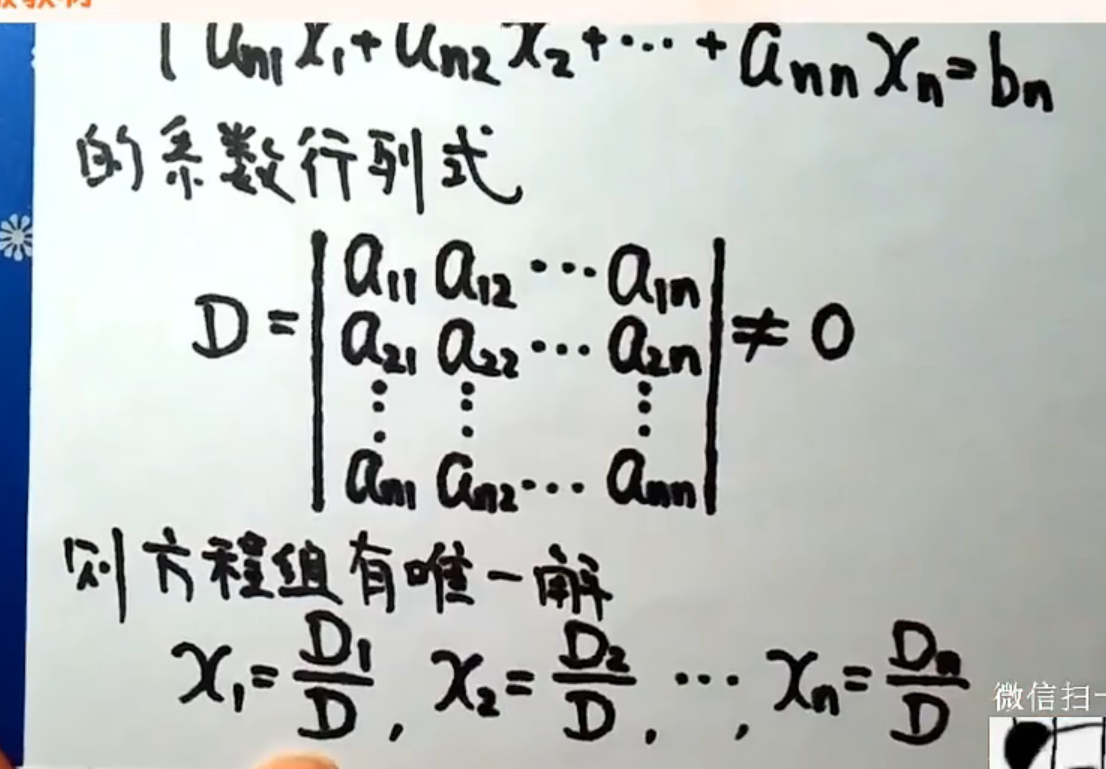 a_{n1}x_1+a_{n2}x_2+⋯+a_{nn}x_n=b_n
的系数行列式
D=|a_{11} a_{12} ⋯ a_{1n}|≠0
a_{21} a_{22} ⋯ a_{2n}
⋮ ⋮ ⋮
a_{n1} a_{n2} ⋯ a_{nn}
则方程组有唯一解
x_1=D_1/D, x_2=D_2/D, ⋯, x_n=D_n/D
微信扫一